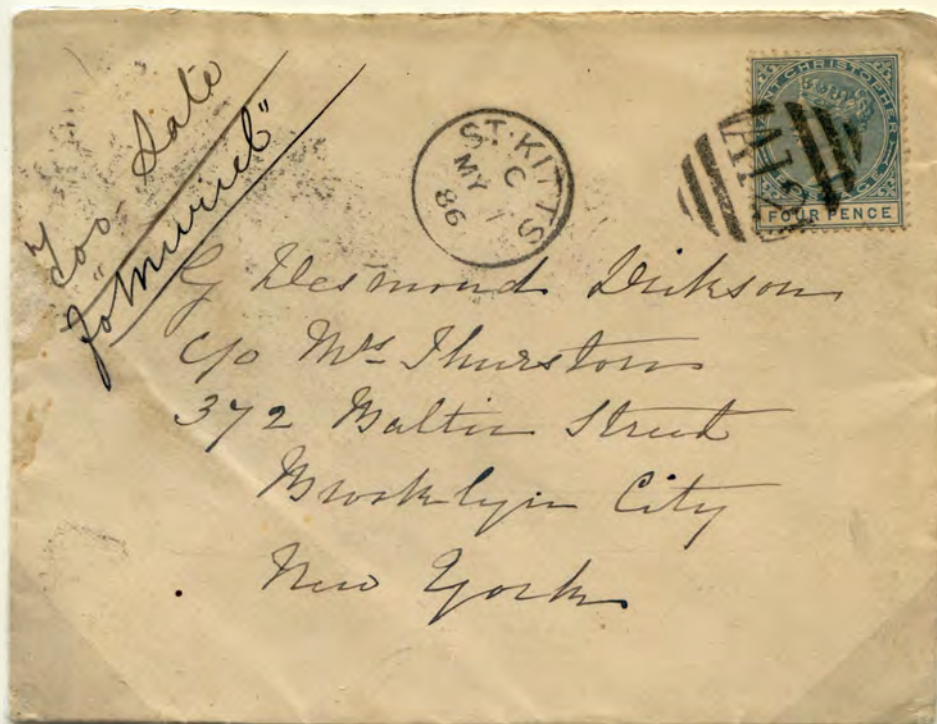 Too Late
"
Jo Muriel"
ST. KITTS
C
MY 1
86
SAINT CHRISTOPHER
FOUR PENCE
A12
G Desmond Dickson
c/o Mrs Thurston
372 Baltic Street
Brooklyn City
New York